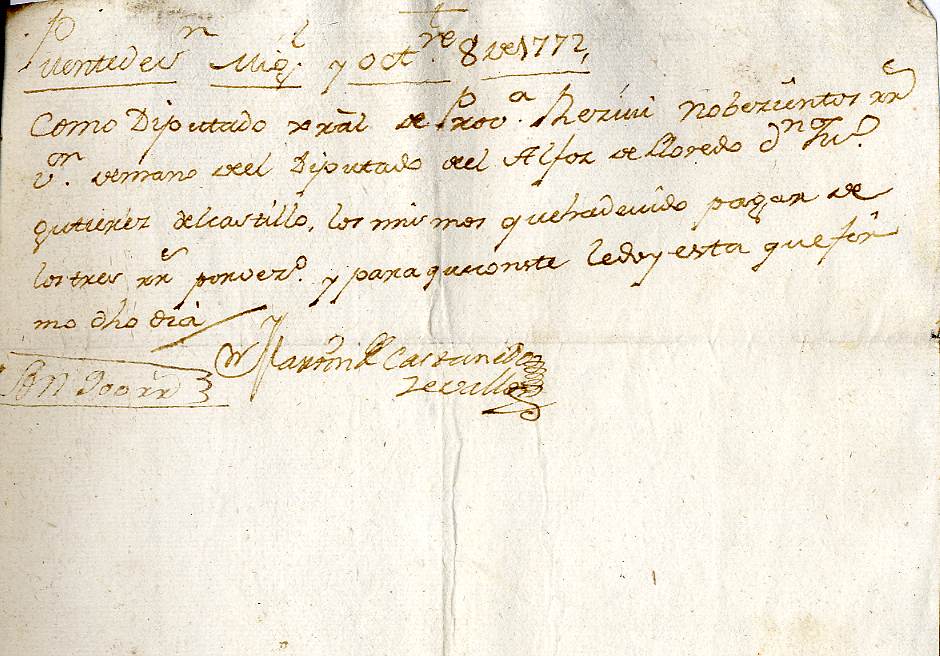 Puente de Sn Migl y octre 8 de 1772,
Como Diputado xral de Prova Rezivi Nobezientos rrs
Vn. de mano deel Diputado del Alfoz de Lloredo dn
gutierrez del castillo, los mismos que ha devido pagar de
los tres rrs por vezo. y para que conste le doy esta que fir
mo dho dia
Son 900 rrs